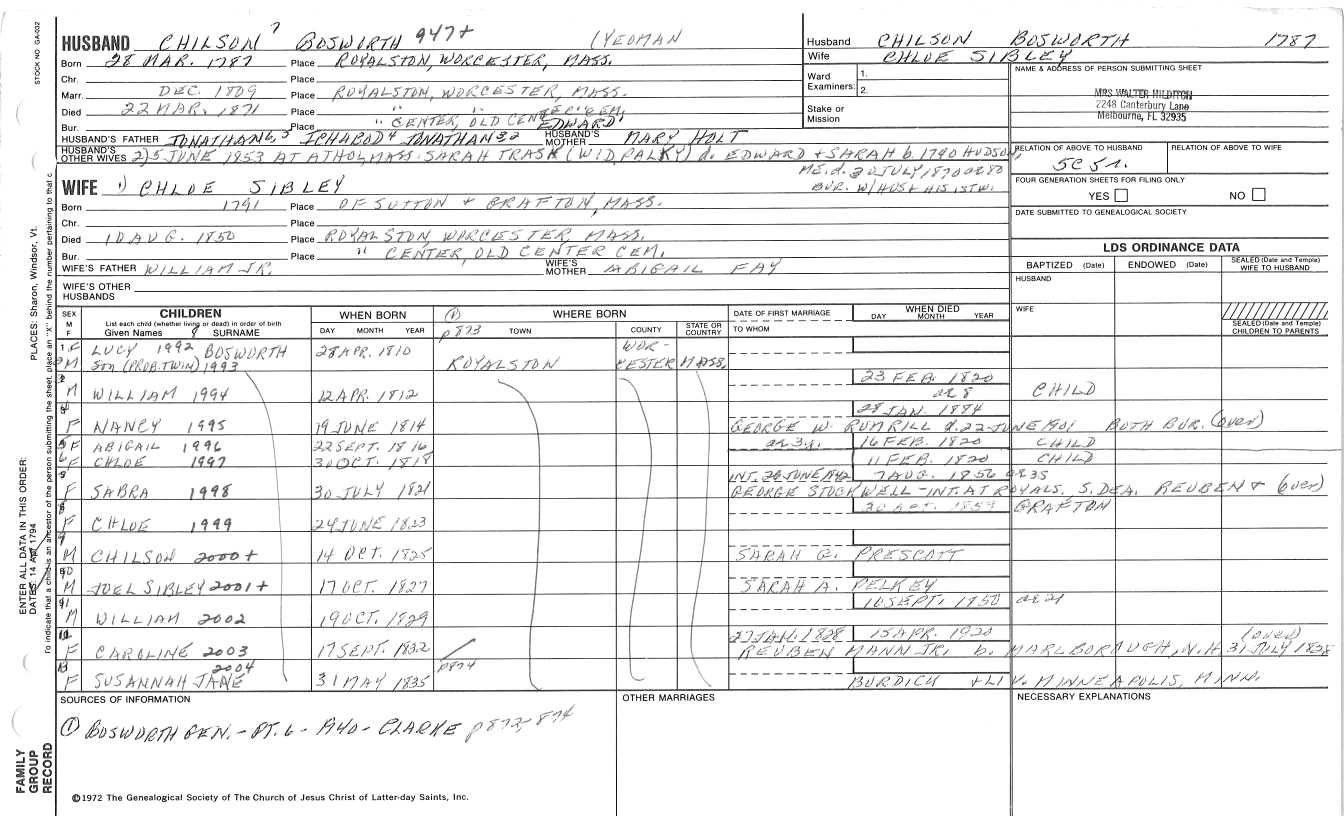 STOCK NO GA-032
HUSBAND CHILSON 7 BOSWORTH 947+ (YEOMAN
Born 28 MAR. 1787 Place ROYALSTON, WORCESTER, MASS.
Chr. Place
Marr. DEC. 1809 Place ROYALSTON, WORCESTER, MASS.
Died 22 MAR. 1871 Place " "
Bur. Place " CENTER, OLD CENTER CEM.
HUSBAND'S FATHER JONATHAN 6, 5 ICHABOD 4 JONATHAN 3 2 EDWARD 1 HUSBAND'S MOTHER MARY HOLT
HUSBAND'S OTHER WIVES 2) 5 JUNE 1853 AT ATHOL MASS. SARAH TRASK (WID. PALKY) d. EDWARD + SARAH b. 1790 HUDSON,
ME. d. 30 JULY 1870
BUR. W/ HUS + HIS 1ST W.
WIFE 1) CHLOE SIBLEY
Born 1791 Place OF SUTTON + GRAFTON, MASS.
Chr. Place
Died 10 AUG. 1850 Place ROYALSTON, WORCESTER, MASS.
Bur. Place " CENTER, OLD CENTER CEM.
WIFE'S FATHER WILLIAM JR. WIFE'S MOTHER ABIGAIL FAY
WIFE'S OTHER HUSBANDS
Husband CHILSON BOSWORTH 1787
Wife CHLOE SIBLEY
Ward Examiners: 1.
2.
Stake or Mission
NAME & ADDRESS OF PERSON SUBMITTING SHEET
MRS WALTER HILDITCH
2248 Canterbury Lane
Melbourne, FL 32935
RELATION OF ABOVE TO HUSBAND RELATION OF ABOVE TO WIFE
5C 5r.
FOUR GENERATION SHEETS FOR FILING ONLY
YES NO
DATE SUBMITTED TO GENEALOGICAL SOCIETY
LDS ORDINANCE DATA
BAPTIZED (Date) ENDOWED (Date) SEALED (Date and Temple) WIFE TO HUSBAND
HUSBAND
WIFE
SEALED (Date and Temple) CHILDREN TO PARENTS
SEX M F CHILDREN List each child (whether living or dead) in order of birth Given Names 8 SURNAME
WHEN BORN DAY MONTH YEAR
(1) p873 WHERE BORN TOWN COUNTY STATE OR COUNTRY
DATE OF FIRST MARRIAGE TO WHOM
WHEN DIED DAY MONTH YEAR
1 F LUCY 1992 BOSWORTH 28 APR. 1810 ROYALSTON WORCESTER MASS.
2 M SON (PROB. TWIN) 1993
23 FEB. 1820
M WILLIAM 1994 12 APR. 1812 ae 8 CHILD
28 JAN. 1894
F NANCY 1995 19 JUNE 1814 GEORGE W. RUMRILL d. 22 JUNE 1901 BOTH BUR. (over)
5 F ABIGAIL 1996 22 SEPT. 1816 ae 3y. 16 FEB. 1820 CHILD
6 F CHLOE 1997 30 OCT. 1818 11 FEB. 1820 CHILD
INT. 26 JUNE 1842 7 AUG. 1856 ae 35
F SABRA 1998 30 JULY 1821 GEORGE STOCKWELL - INT. AT ROYALS. S. DEA. REUBEN + (over)
F CHLOE 1999 24 JUNE 1823 GRAFTON
M CHILSON 2000+ 14 OCT. 1825 SARAH G. PRESCOTT
M JOEL SIBLEY 2001+ 17 OCT. 1827 SARAH A. PELKEY
10 SEPT. 1850 ae 21
M WILLIAM 2002 19 OCT. 1829
27 JAN. 1828 15 APR. 1920 (over)
F CAROLINE 2003 17 SEPT. 1832 REUBEN MANN JR. b. MARLBOROUGH, N.H. 31 JULY 1838
F SUSANNAH JANE 2004 31 MAY 1835 p874 BURDICK + LIV. MINNEAPOLIS, MINN.
SOURCES OF INFORMATION OTHER MARRIAGES NECESSARY EXPLANATIONS
(1) BOSWORTH GEN. - PT. 6 - 1940 - CLARKE p872-874
©1972 The Genealogical Society of The Church of Jesus Christ of Latter-day Saints, Inc.
PLACES: Sharon, Windsor, Vt.
ENTER ALL DATA IN THIS ORDER:
DATES: 14 1794
To indicate that a child is an ancestor of the person submitting the sheet, place an "X" behind the number pertaining to that c
FAMILY GROUP RECORD